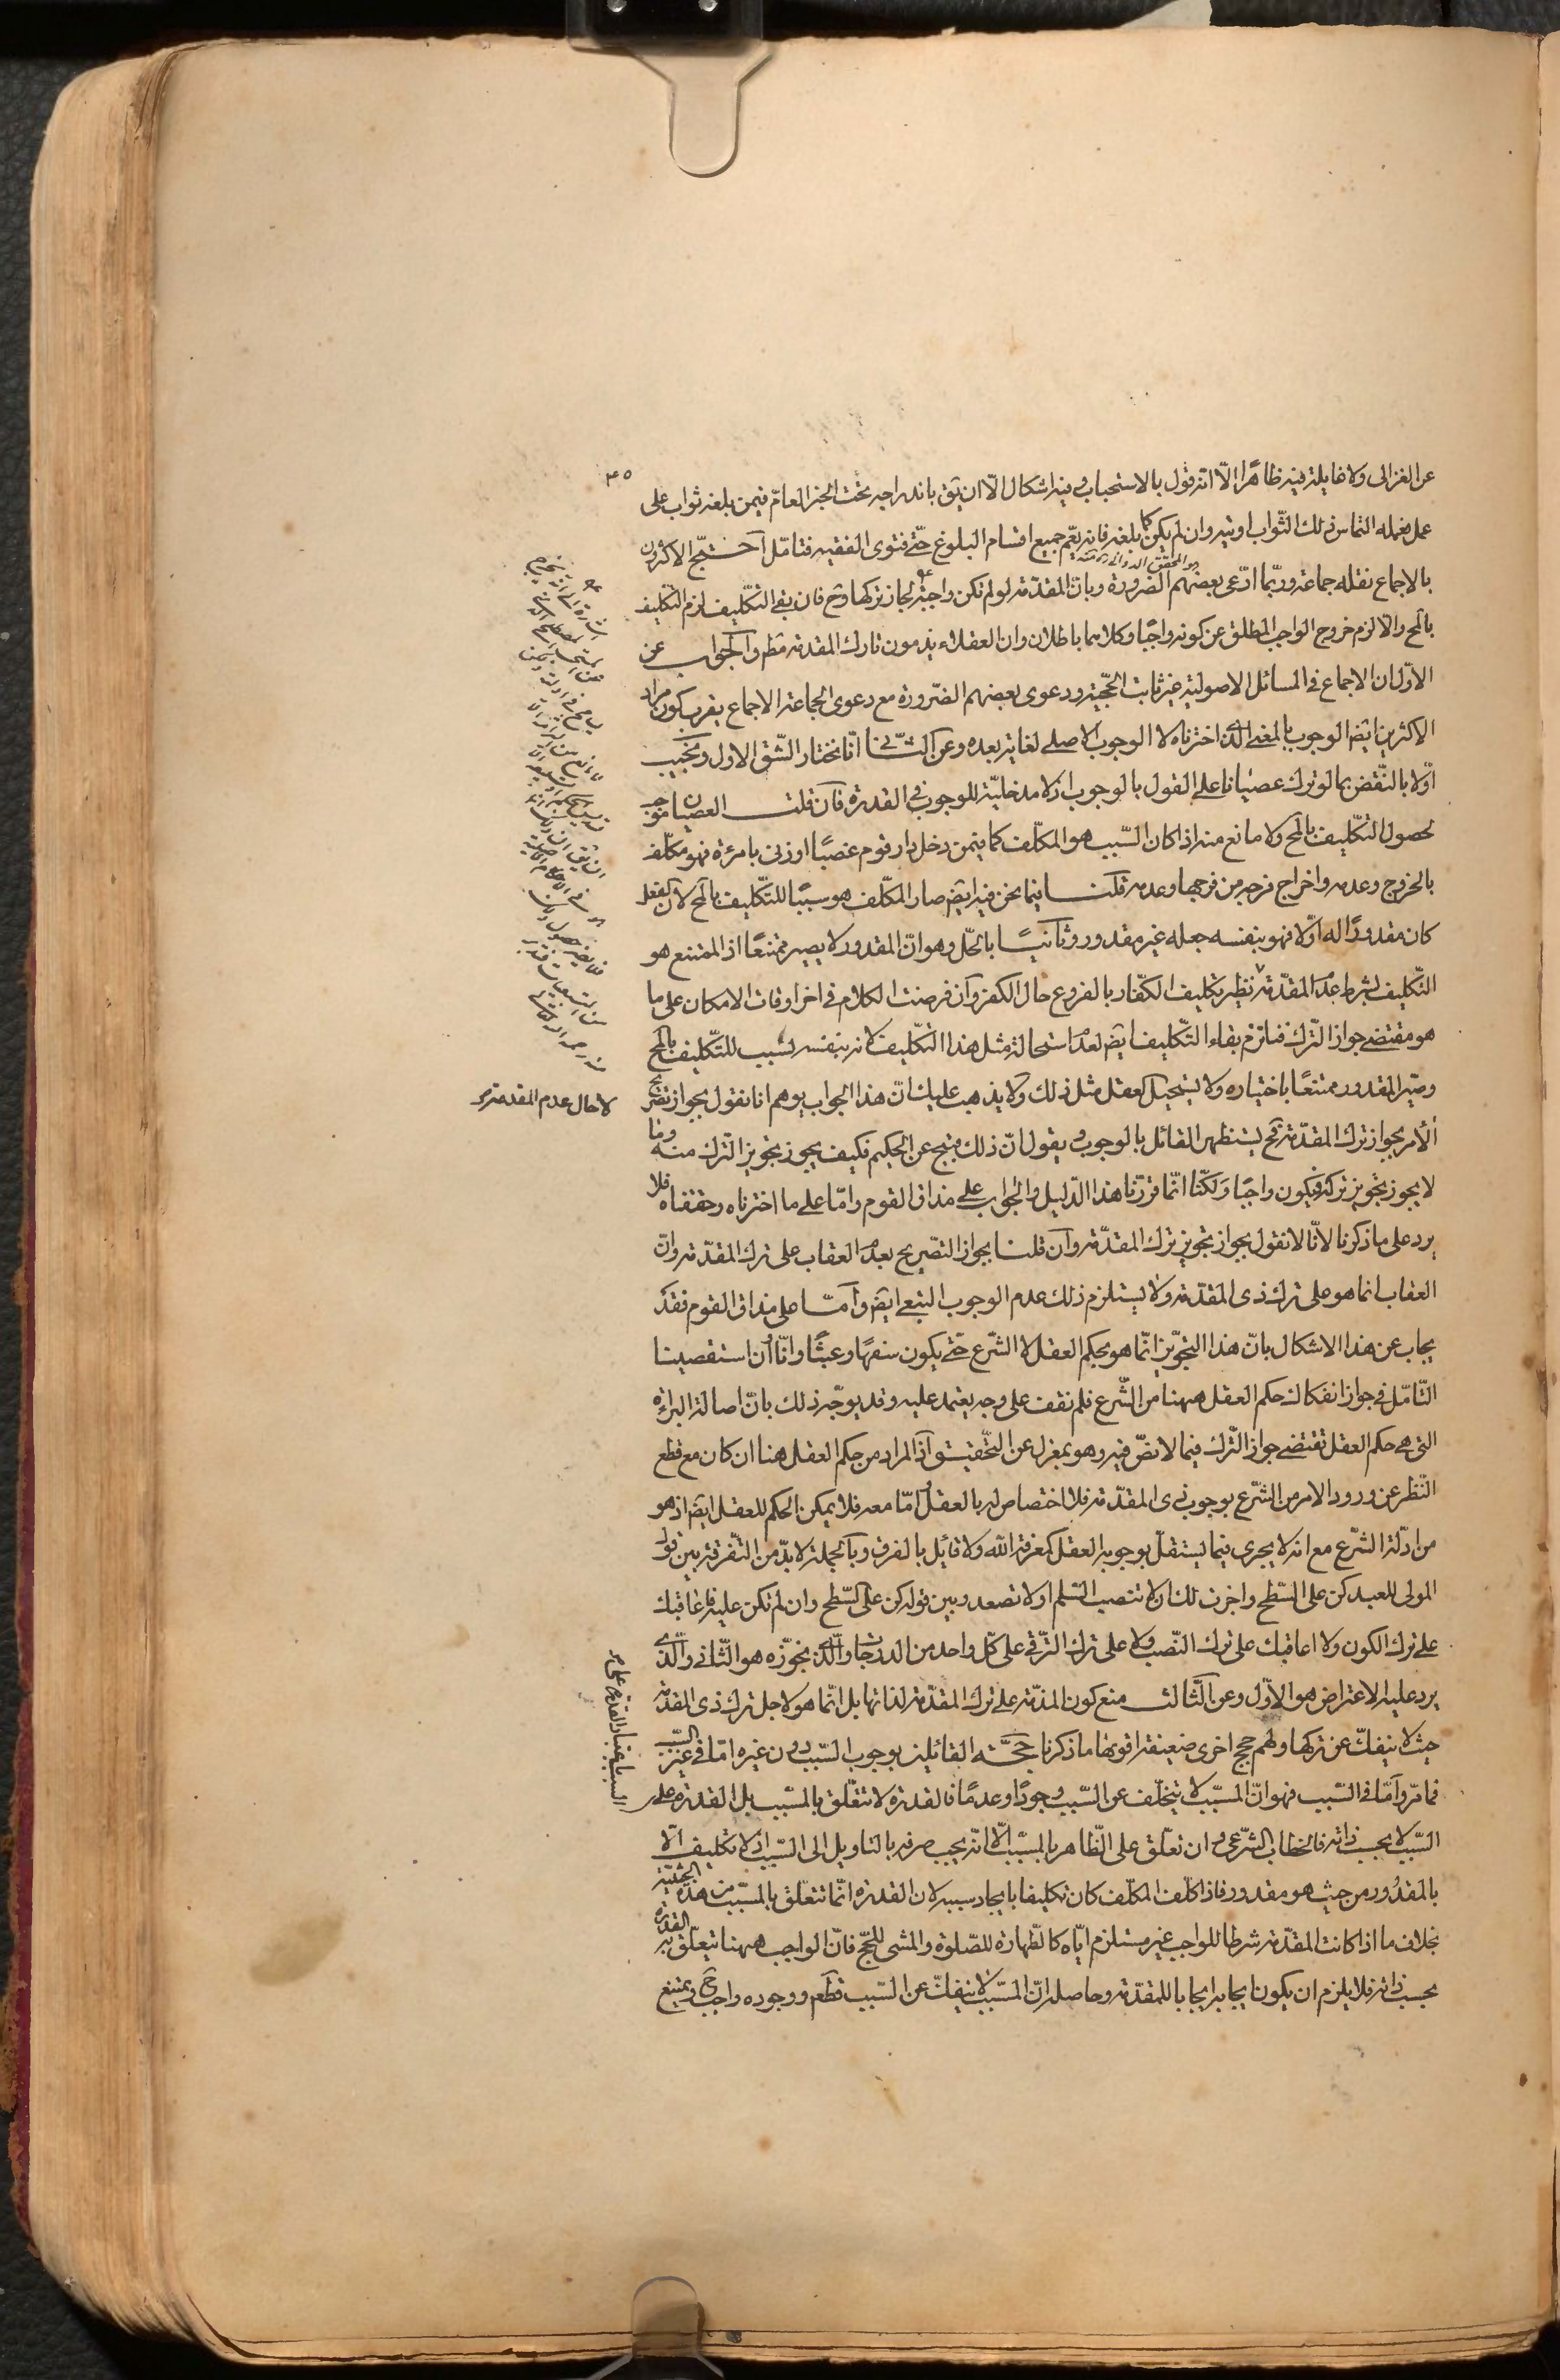 ٤٥
عن الغزالى ولا غايلة فيه ظاهرا الّا انه قول بالاستحباب وفيه اشكال الّا ان يق باندراجه تحت الخبر العامّ فيمن بلغه ثواب على
عمل ففعله التماس ذلك الثّواب اوتيه وان لم يكن كما بلغه فانه يعّم جميع اقسام البلوغ حتّى فتوى الفقيه فتامّل احتجّ الاكثرون
بالاجماع نقله جماعة وربّما ادّعى بعضهم الضرورة وبانّ المقدّمة لو لم تكن واجبة لجاز تركها وح فان بقى التكليف لزم التكليف
هو المحقق الدوانى
بالمح والّا لزم خروج الواجب المطلق عن كونه واجبًا وكلاهما باطلان وان العقلاء يذمون تارك المقدمة مطم والجواب عن
الاوّل ان الاجماع فى المسائل الاصولية غير ثابت الحّجية ودعوى بعضهم الضّرورة مع دعوى الجماعة الاجماع يقرب كون مراد
الاكثرين ايضا الوجوب بالمعنى الّذى اخترناه لا الوجوب الاصلى لغاية بعده وعن الثّانى انّا نختار الشّق الاول ونجيب
اوّلا بالنّقض بما لو ترك عصيانا على القول بالوجوب اذ لا مدخليّة للوجوب فى القدرة فان قلت العصيان موجب
لحصول التكّليف بالمح ولا مانع منه اذا كان السّبب هو المكلّف كما فيمن دخل دار قوم غصبًا او زنى بامرءة فهو مكلّف
بالخروج وعدمه واخراج فرجه من فرجها وعدمه قلت فيما نحن فيه ايض صار المكّلف هو سببًا للتّكليف بالمح لان الفعل
كان مقدورًا له اوّلا فهو بنفسه جعله غير مقدور وثانيًا بالحّل وهو انّ المقدور لا يصير ممتنعًا اذ الممتنع هو
التّكليف بشرط عدم المقدّمة نظير تكليف الكفّار بالفروع حال الكفر وان فرضت الكلام فى اخر اوقات الامكان على ما
هو مقتضى جواز التّرك فنلتزم بقاء التّكليف ايض لعدم استحالة مثل هذا التّكليف لانه بنفسه سبب للتّكليف بالمح
وصيّر المقدور ممتنعًا باختياره ولا يستحيل العقل مثل ذلك ولا يذهب عليك انّ هذا الجواب يوهم انا نقول بجواز تصريح
لا حال عدم المقدمة
الأمر بجواز ترك المقدّمة فح يستظهر القائل بالوجوب ويقول انّ ذلك قبيح عن الحكيم فكيف يجوز تجويز التّرك منه وما
لا يجوز تجويز تركه فيكون واجبًا ولكنّا انّما قررّنا هذا الدّليل والجواب على مذاق القوم وامّا على ما اخترناه وحققناه فلا
يرد على ما ذكرنا لأنّا لا نقول بجواز تجويز ترك المقدّمة وان قلنا بجواز التصّريح بعدم العقاب على ترك المقدّمة وانّ
العقاب انما هو على ترك ذى المقدّمة ولا يستلزم ذلك عدم الوجوب التبعى ايض وامّا على مذاق القوم فقد
يجاب عن هذا الاشكال بانّ هذا التجّويز انّما هو بحكم العقل لا الشّرع حتّى يكون سفهًا وعبثًا وانّا وان استقصينا
التّامّل فى جواز انفكاك حكم العقل ههنا من الشّرع فلم نقف على وجه يعتمد عليه وقد يوجّه ذلك بانّ اصالة البراءة
التى هى حكم العقل تقتضى جواز التّرك فيما لا نصّ فيه وهو بمعزل عن التحّقيق اذ المراد من حكم العقل هنا ان كان مع قطع
النّظر عن ورود الامر من الشّرع بوجوب ذى المقدّمة فلا اختصاص له بالعقل وامّا معه فلا يمكن الحكم للعقل ايض اذ هو
من ادلّة الشّرع مع انه لا يجرى فيما يستقلّ بوجوبه العقل كمعرفة اللّه ولا قائل بالفرق وبالجملة لا بدّ من التّفرقة بين قول
المولى للعبد كن على السّطح واجزت لك ان لا تنصب السّلم او لا تصعد وبين قوله كن على السّطح وان لم تكن عليه فاعاقبك
على ترك الكون ولا اعاقبك على ترك النّصب ولا على ترك التّرقى على كلّ واحد من الدرجات والّذى نجوّزه هو الثّانى والّذى
يرد عليه الاعتراض هو الاوّل وعن الثّالث منع كون المذمّة على ترك المقدّمة لذاتها بل انّما هو لاجل ترك ذى المقدّمة
حيث لا ينفكّ عن تركها ولهم حجج اخرى ضعيفة اقويها ما ذكرنا حجّة القائلين بوجوب السّبب دون غيره امّا فى غير السّبب
فما مرّ وامّا فى السّبب فهو انّ المسبّب لا يتخلّف عن السّبب وجودًا وعدمًا فالقدرة لا تتعّلق بالمسّبب بل القدرة على
السّبب لا بحسب ذاته فالخطاب الشّرعى وان تعلّق على الظّاهر بالمسّبب الّا انّه يجب صرفه بالتاويل الى السّبب اذ لا تكليف الّا
بالمقدُور من حيث هو مقدور فاذا كلّف المكلّف كان تكليفا بايجاد سببه لان القدرة انّما تتعلّق بالمسّبب من هذه الحيثيّة
بخلاف ما اذا كانت المقدّمة شرطا للواجب غير مستلزم ايّاه كالطّهارة للصّلوة والمشى للحجّ فانّ الواجب ههنا يتعلّق به القدرة
بحسب ذاته فلا يلزم ان يكون ايجابه ايجابا للمقدّمة وحاصله انّ المسّبب لا ينفكّ عن السّبب قطعم ووجوده واجب ح وممتنع